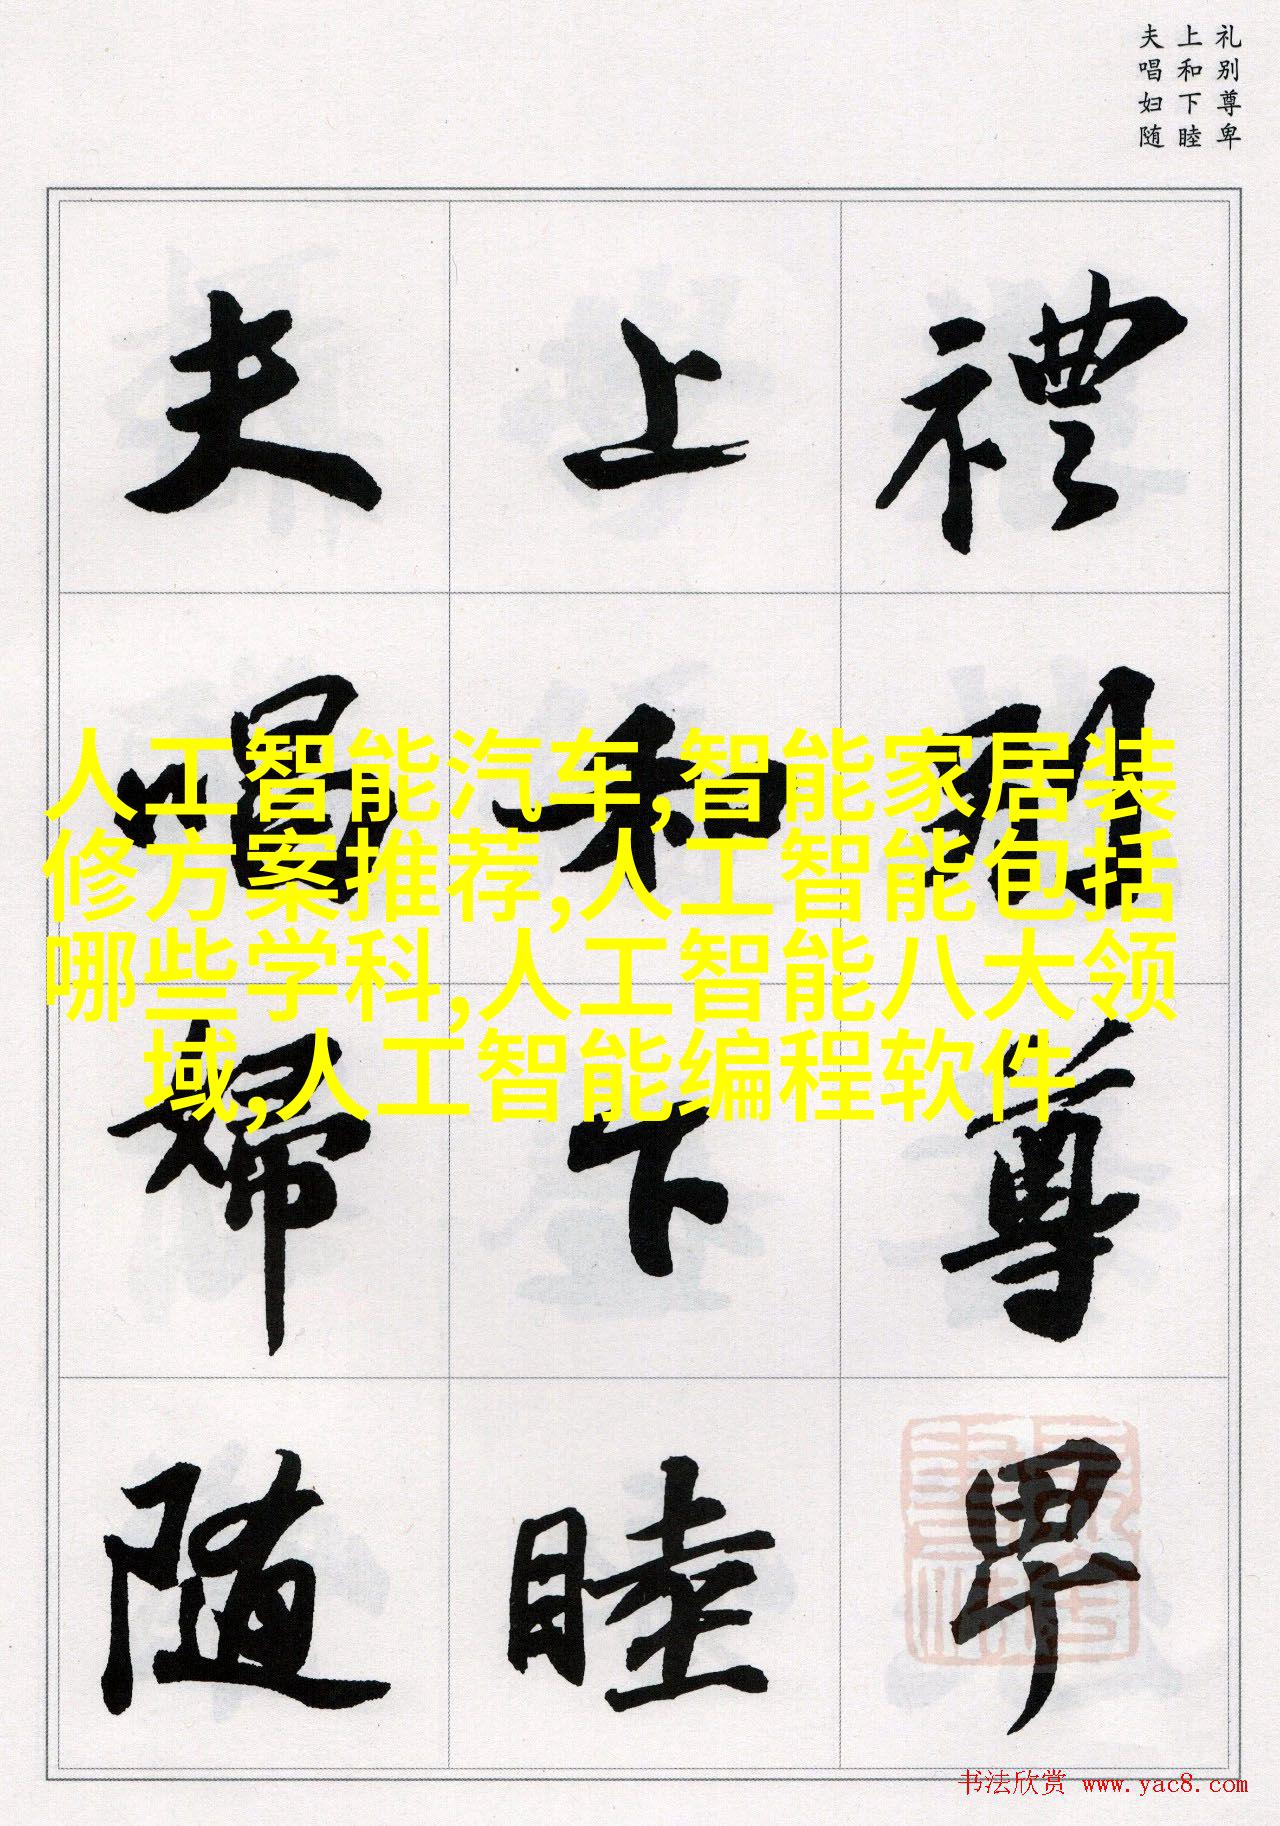 礼别尊卑
上和下睦
夫唱妇随
禮別尊卑
上和下睦
夫唱婦随
人工智能汽车,智能家居装
修方案推荐,人工智能包括
哪些学科,人工智能八大领
域,人工智能编程软件
书法欣赏 www.yac8.com